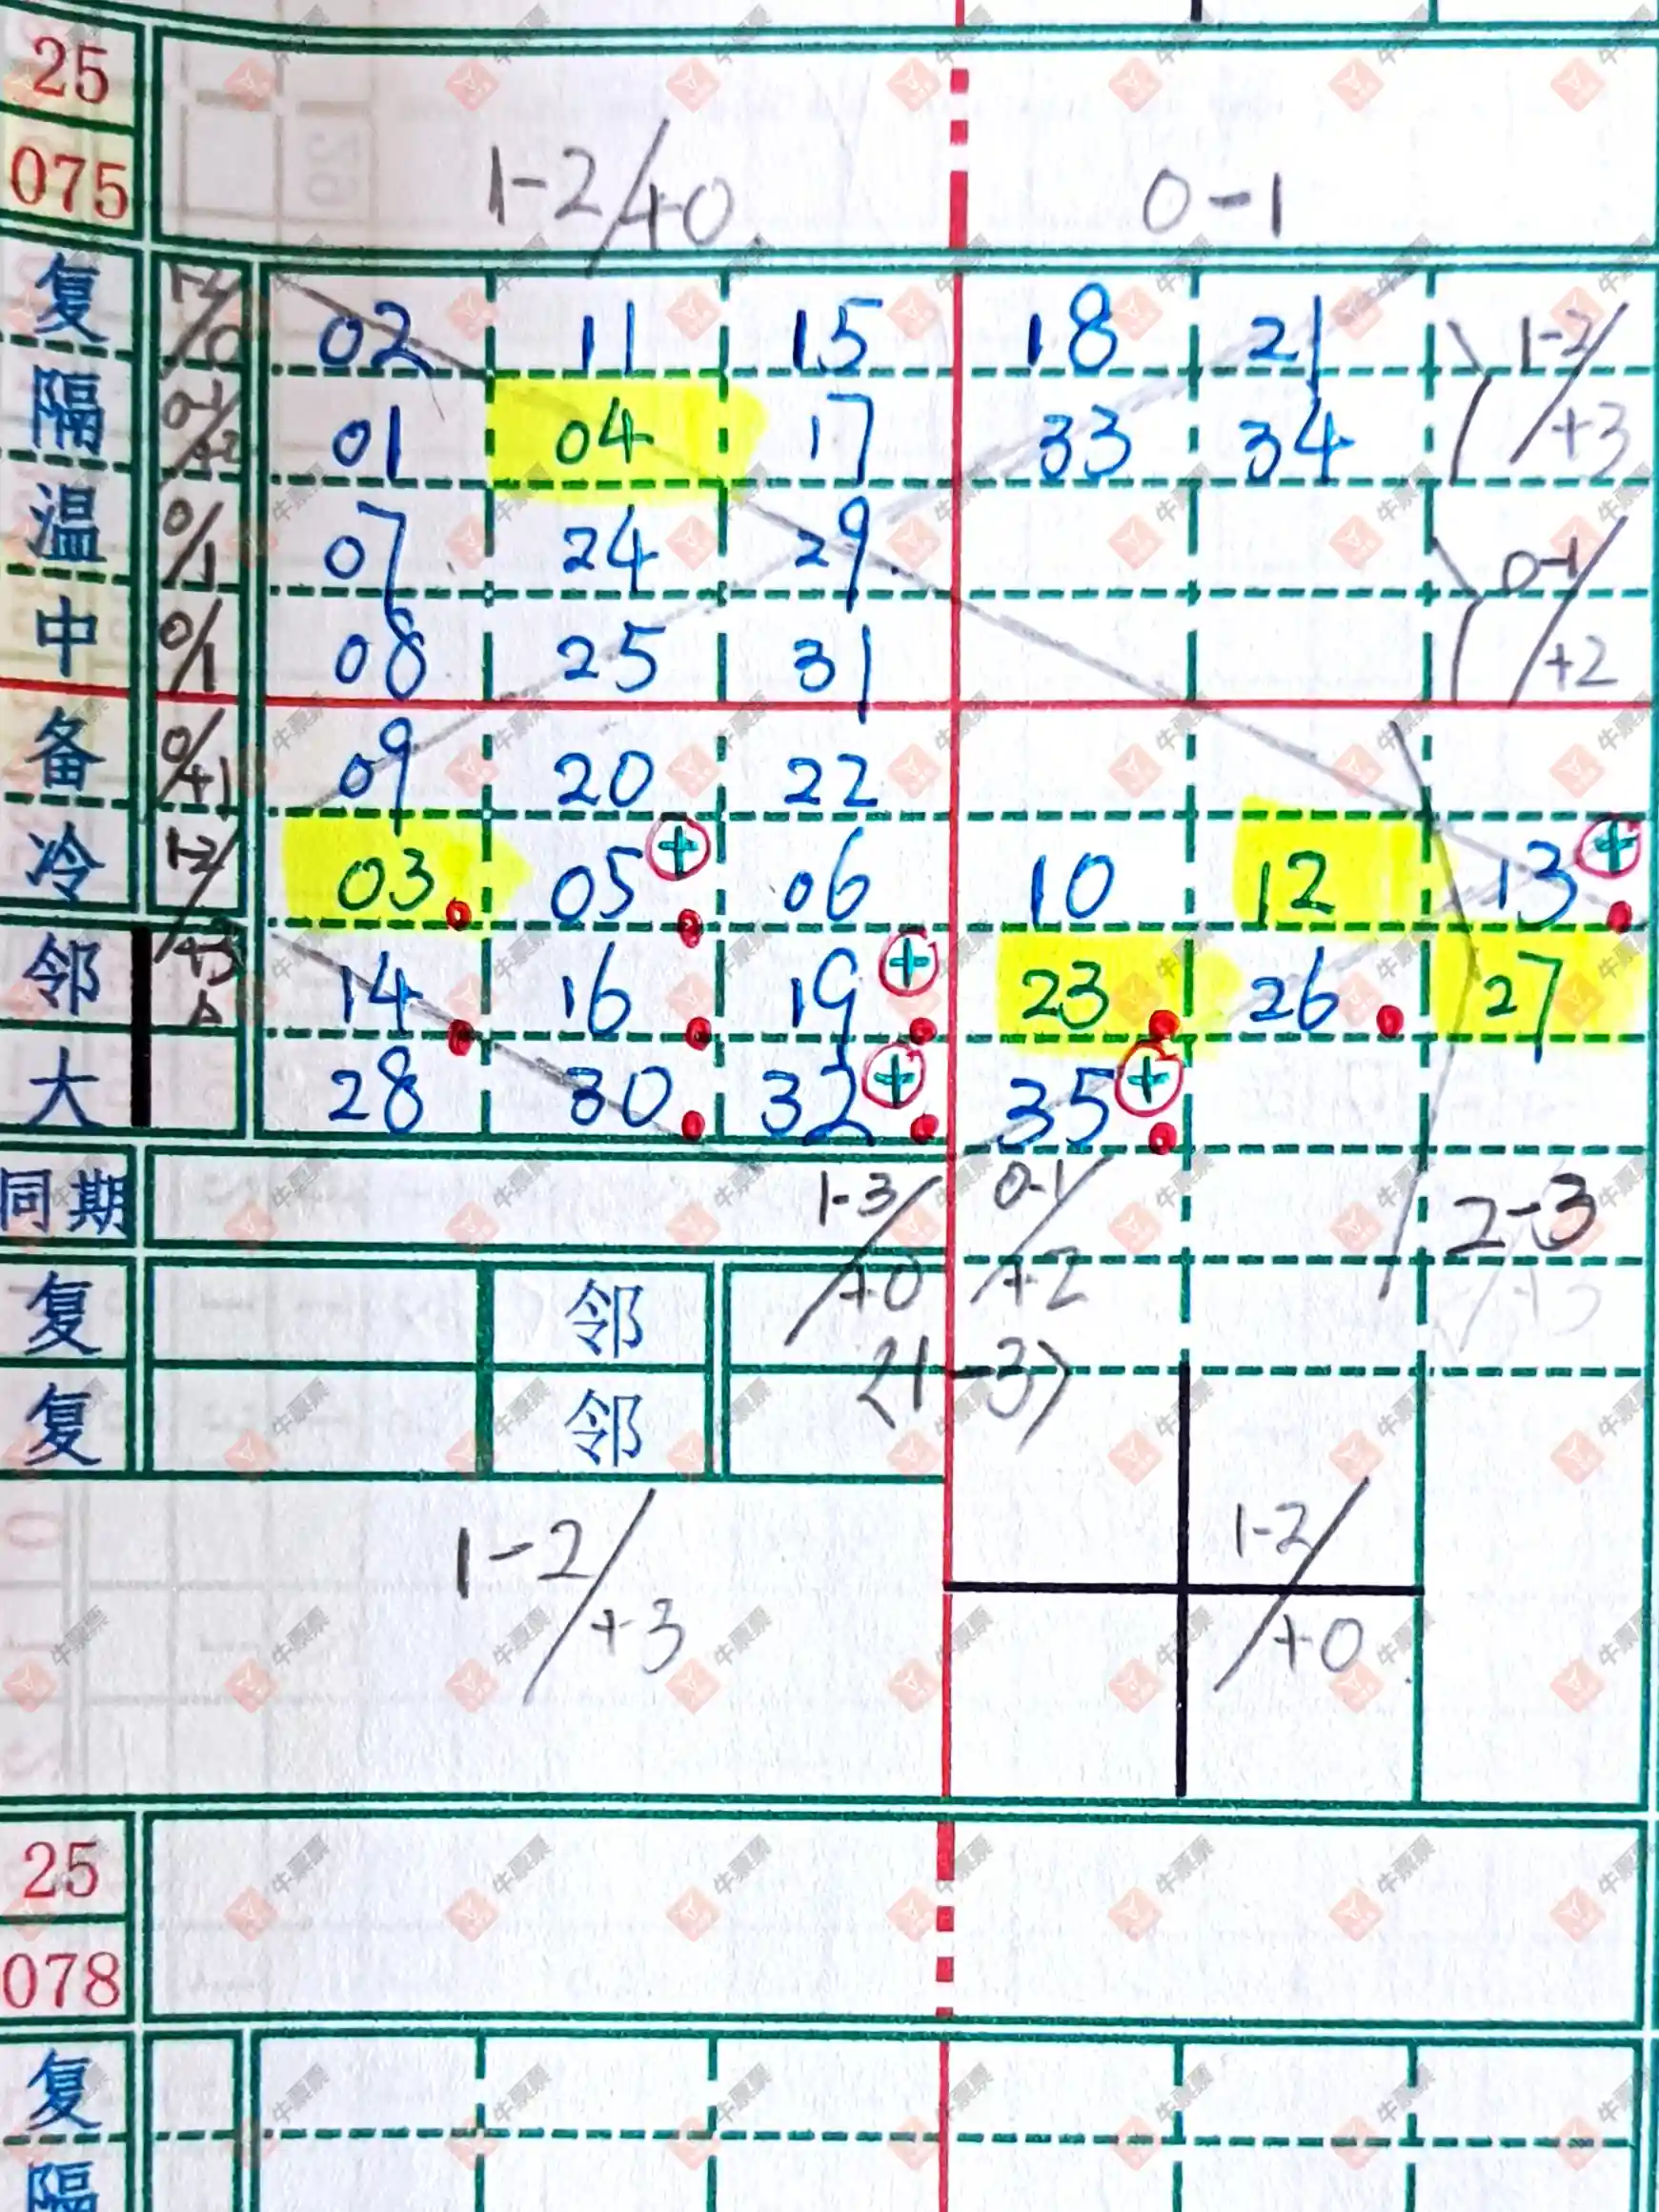 25
075 1-2/+0. 0-1
复 1-2/0 02 11 15 18 21 1-2/+3
隔 0-1/+2 01 04 17 33 34
温 0/1 07 24 29 0-1/+2
中 0/1 08 25 31
备 0/+1 09 20 22
冷 1-2/+3 03 05 + 06 10 12 13 +
邻 14 16 19 + 23 26 27
大 28 30 32 + 35 +
同期 1-3/+0 0-1/+2 2-3
复 邻
复 邻 <1-3>
1-2/+3 1-2/+0
25
078
复
隔
牛票票